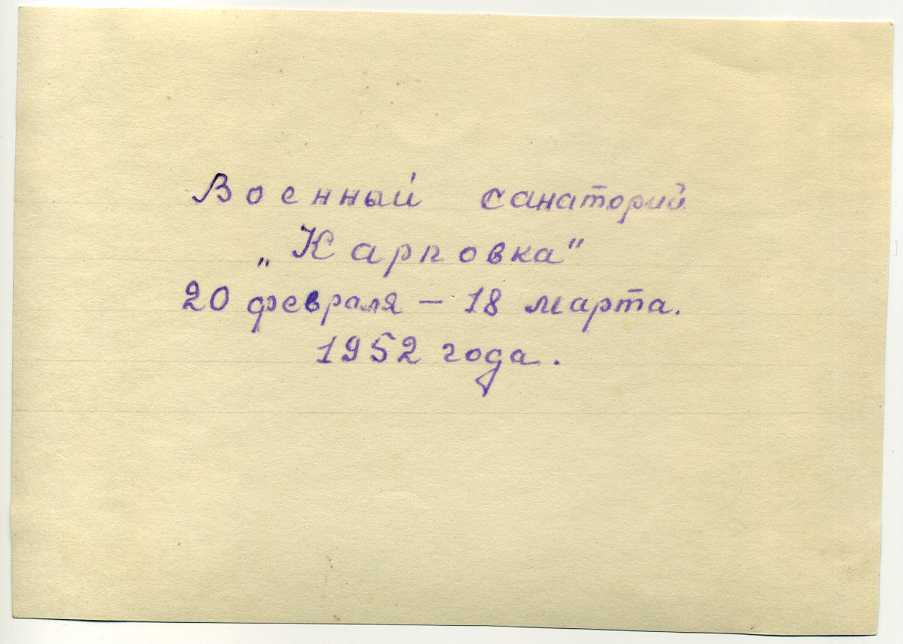 Военный санаторий
„Карповка"
20 февраля – 18 марта.
1952 года.